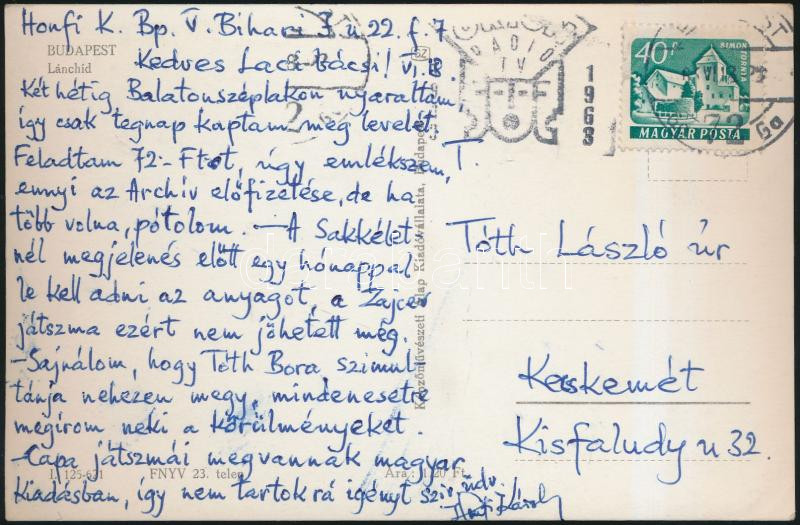 Honfi K. Bp. V. Bihari J. u. 22. f. 7.
BUDAPEST
Lánchíd
Kedves Laca bácsi! VI. 8.
Két hétig Balatonszéplakon nyaraltam,
így csak tegnap kaptam meg levelét.
Feladtam 72-Ft-ot, úgy emlékszem,
ennyi az Archív előfizetése, de ha
több volna, pótolom. — A Sakkélet
nél megjelenés előtt egy hónappal
le kell adni az anyagot, a Zajcev
játszma ezért nem jöhetett még.
— Sajnálom, hogy Tóth Bora szimul
tánja nehezen megy, mindenesetre
megírom neki a körülményeket.
— Capa játszmái megvannak magyar
FNYV 23. telep
kiadásban, így nem tartok rá igényt Szív. üdv.
Honfi Károly
Képzőművészeti Alap Kiadóvállalata, Budapest
RADIO
TV
1963
40f
SIMONTORNYA
MAGYAR POSTA
72
T.
Tóth László úr
Kecskemét
Kisfaludy u 32.
darabanth